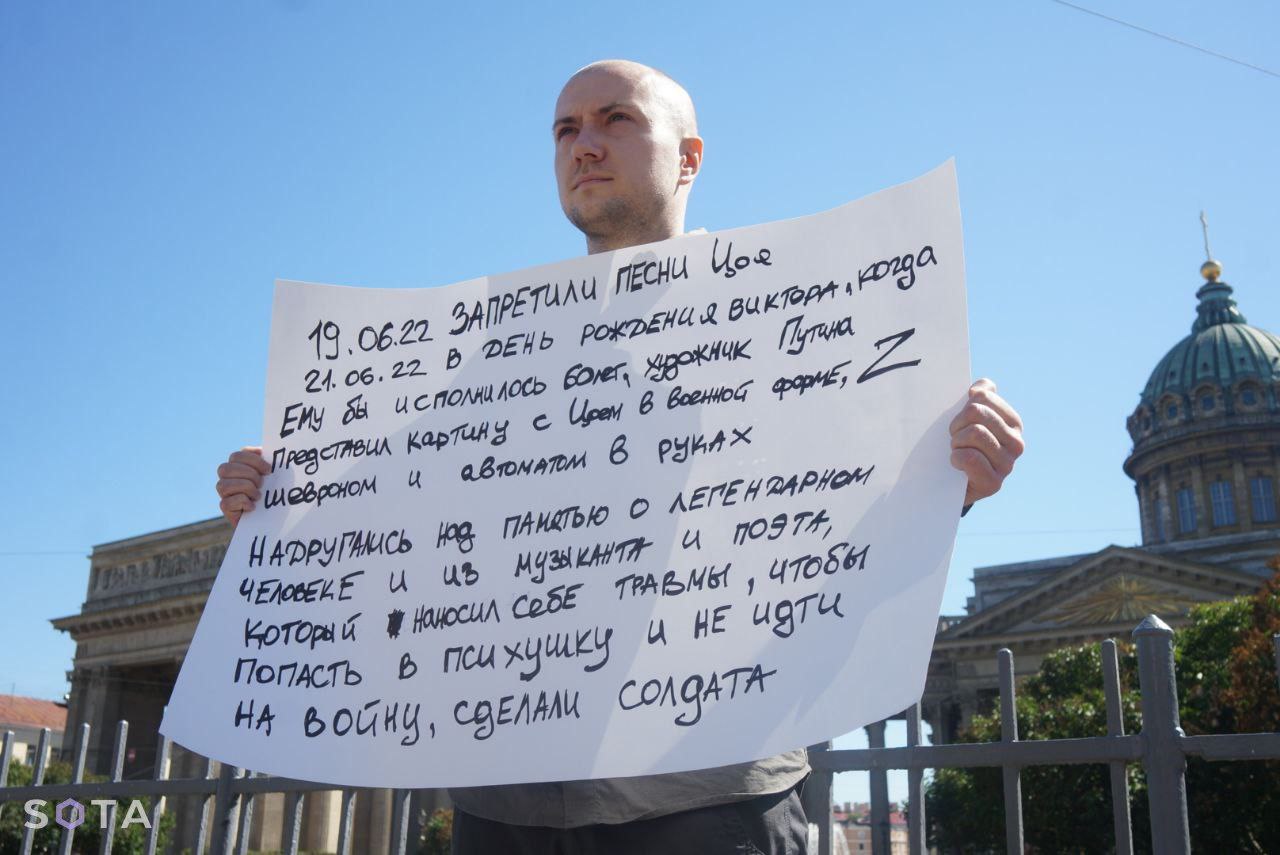 19.06.22 ЗАПРЕТИЛИ ПЕСНИ Цоя
21.06.22 В ДЕНЬ РОЖДЕНИЯ ВИКТОРА, когда
ЕМУ бы исполнилось 60лет, художник Путина
представил картину с Цоем в военной форме, Z
шевроном и автоматом в руках
НАДРУГАЛИСЬ над ПАМЯТЬЮ О ЛЕГЕНДАРНОМ
ЧЕЛОВЕКЕ И ИЗ МУЗЫКАНТА И ПОЭТА,
который наносил СЕБЕ ТРАВМЫ, ЧТОБЫ
ПОПАСТЬ В ПСИХУШКУ И НЕ ИДТИ
НА ВОЙНУ, СДЕЛАЛИ СОЛДАТА
SOTA